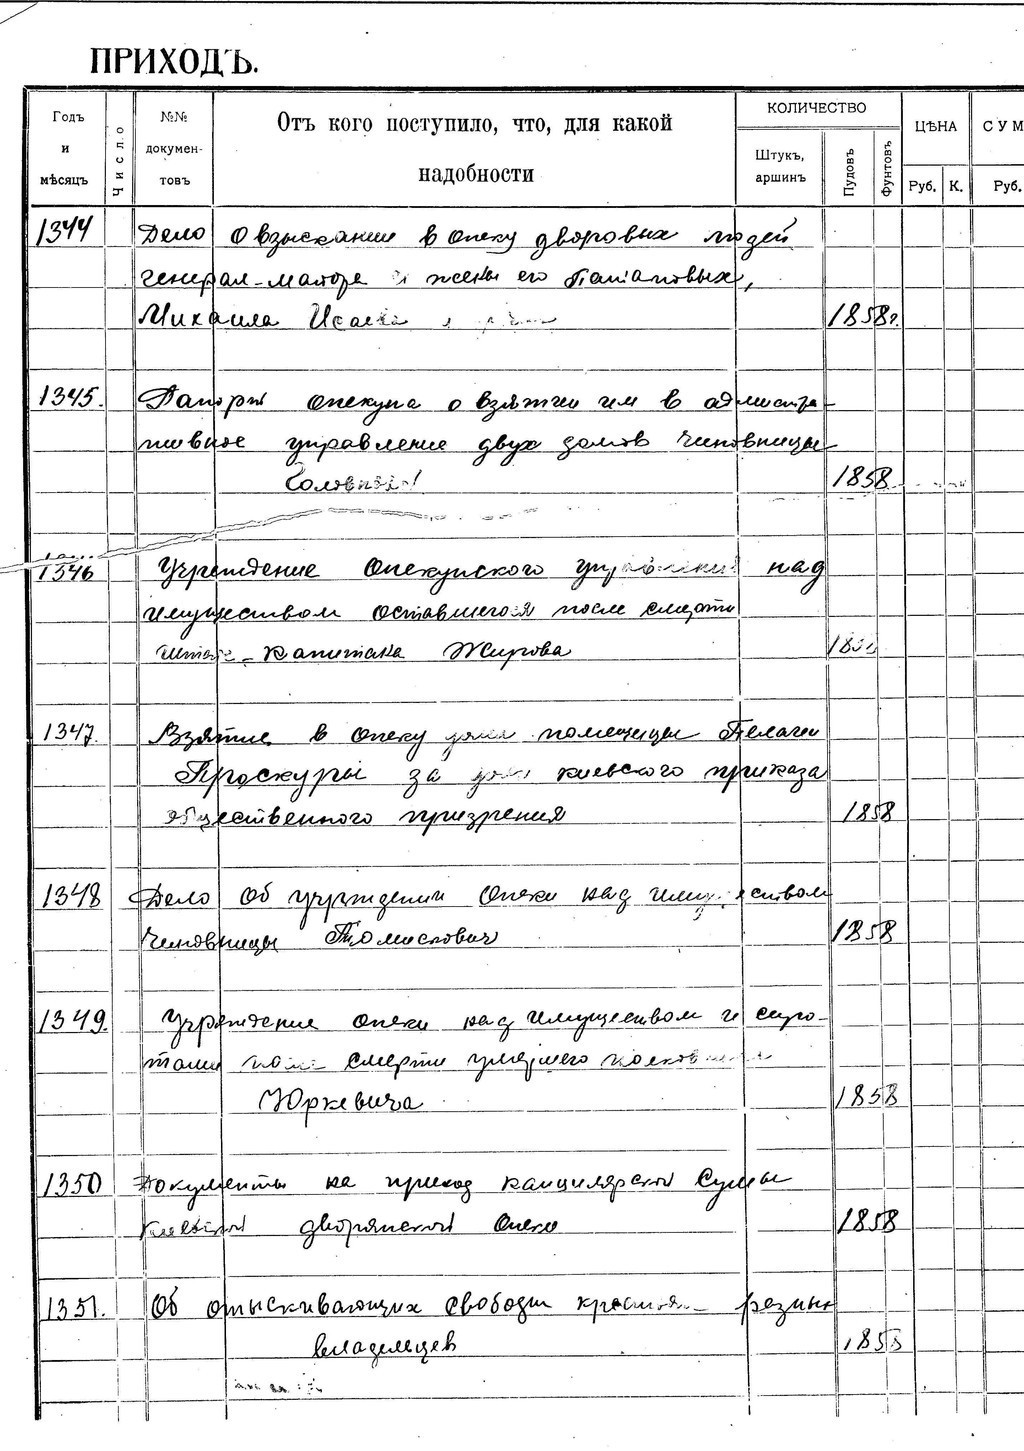 ПРИХОДЪ.
Годъ и мѣсяцъ
Число
№№ документовъ
Отъ кого поступило, что, для какой надобности
КОЛИЧЕСТВО
Штукъ, аршинъ
Пудовъ
Фунтовъ
ЦѢНА
Руб.
К.
СУМ
Руб.
1344 Дело О взыскании в опеку дворовых людей
генерал-майора и жены его
Михаила Исаева 1858г.
1345. Рапорт опекуна о взятии им в администра-
тивное управление двух домов чиновницы
1858
1346 Учреждение Опекунского управления над
имуществом оставшегося после смерти
Штабс-капитана Жирова
1347. Взятие в опеку дома помещицы Пелагеи
Проскуры за долг киевского приказа
общественного призрения 1858
1348 Дело Об учреждении опеки над имуществом
чиновницы Томискович 1858
1349. Учреждение опеки над имуществом и сиро-
тами после смерти умершего полковника
Юркевича 1858
1350 Документы на приход канцелярской Суммы
Киевской дворянской Опеки 1858
1351. Об отыскивающих свободы
владельцев 1858